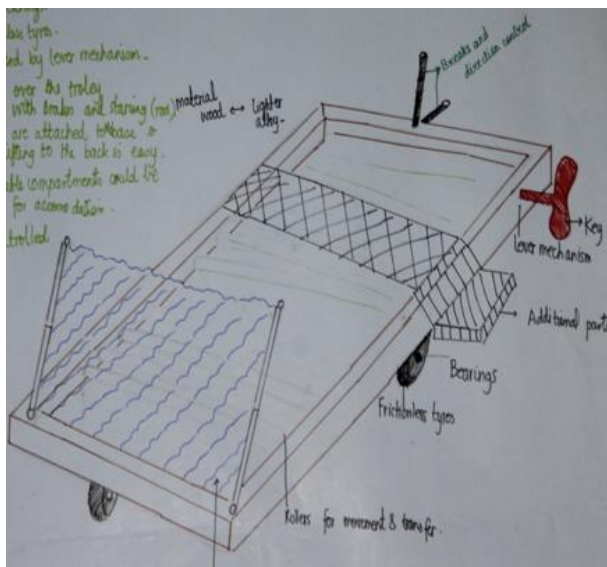 tyres.
by lever mechanism.
over the troley
with brakes and
are attached to base &
to the back is easy.
compartments could be
for
material
wood ↔ Lighter
alloy
Breaks and
direction control
Key
lever mechanism
Additional part
Bearings
Frictionless tyres
Rollers for movement & transfer.